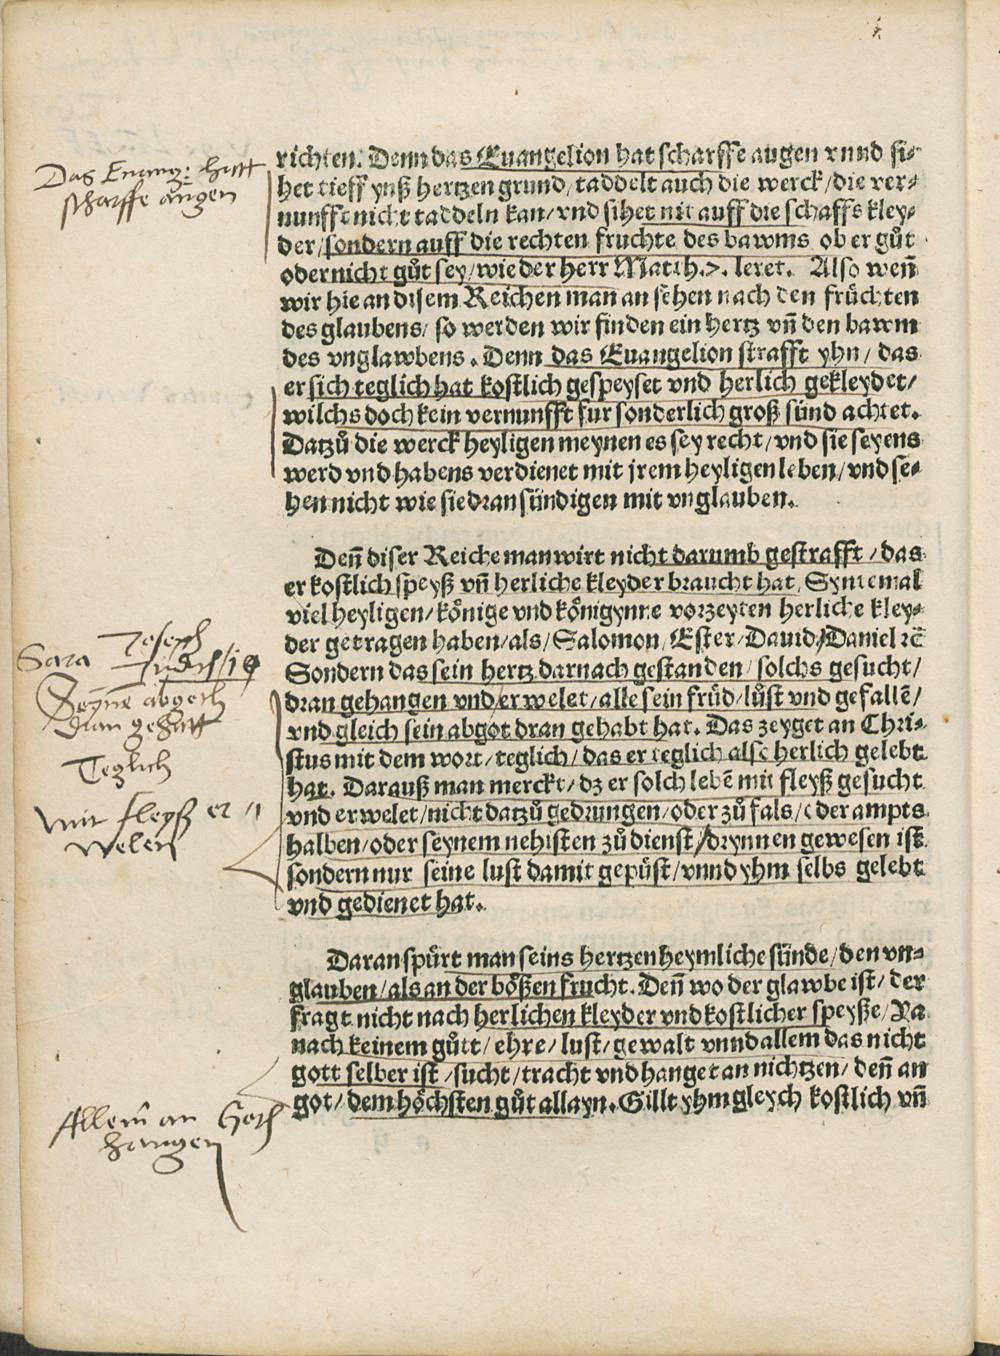 richten. Denn das Euangelion hat scharffe augen vnnd si-
het tieff ynß hertzen grund/ taddelt auch die werck/ die ver-
nunfft nicht taddeln kan/ vnd sihet nit auff die schaffs kley-
der/ sondern auff die rechten fruchte des bawms ob er gůt
oder nicht gůt sey/ wie der herr Matth.7. leret. Also weñ
wir hie an disem Reichen man an sehen nach den früchten
des glaubens/ so werden wir finden ein hertz vñ den bawm
des vnglawbens. Denn das Euangelion strafft yhn/ das
er sich teglich hat kostlich gespeyset vnd herlich gekleydet/
wilchs doch kein vernunfft fur sonderlich groß sünd achtet.
Datzů die werck heyligen meynen es sey recht/ vnd sie seyens
werd vnd habens verdienet mit jrem heyligen leben/ vnd se-
hen nicht wie sie dran sündigen mit vnglauben.
Deñ diser Reiche man wirt nicht darumb gestrafft/ das
er kostlich speyß vñ herliche kleyder braucht hat, Syntemal
viel heyligen/ könige vnd königynne vorzeyten herliche kley-
der getragen haben/ als/ Salomon/ Ester/ Dauid/ Daniel ꝛc̄
Sondern das sein hertz darnach gestanden/ solchs gesucht/
dran gehangen vnd er welet/ alle sein früd/ lůst vnd gefallē/
vnd gleich sein abgot dran gehabt hat. Das zeyget an Chri-
stus mit dem wort/ teglich/ das er teglich also herlich gelebt
hat. Darauß man merckt/ dz er solch lebē mit fleyß gesucht
vnd erwelet/ nicht datzů gedrungen/ oder zů fals/ oder ampts
halben/ oder seynem nehisten zů dienst/ drynnen gewesen ist.
sondern nur seine lust damit gepüst/ vnnd yhm selbs gelebt
vnd gedienet hat.
Daran spürt man seins hertzen heymliche sünde/ den vn-
glauben/ als an der bößen frucht. Deñ wo der glawbe ist/ der
fragt nicht nach herlichen kleyder vnd kostlicher speyße/ Ja
nach keinem gůtt/ ehre/ lust/ gewalt vnnd allem das nicht
gott selber ist/ sucht/ tracht vnd hanget an nichtzen/ deñ an
got/ dem höchsten gůt allayn. Gillt yhm gleych kostlich vñ
Das Euang: hatt
scharffe augen
Joseph
Sara
abgoth
dran gehatt
Teglich
mit fleyß er
welen
Allein an Goth
hangen